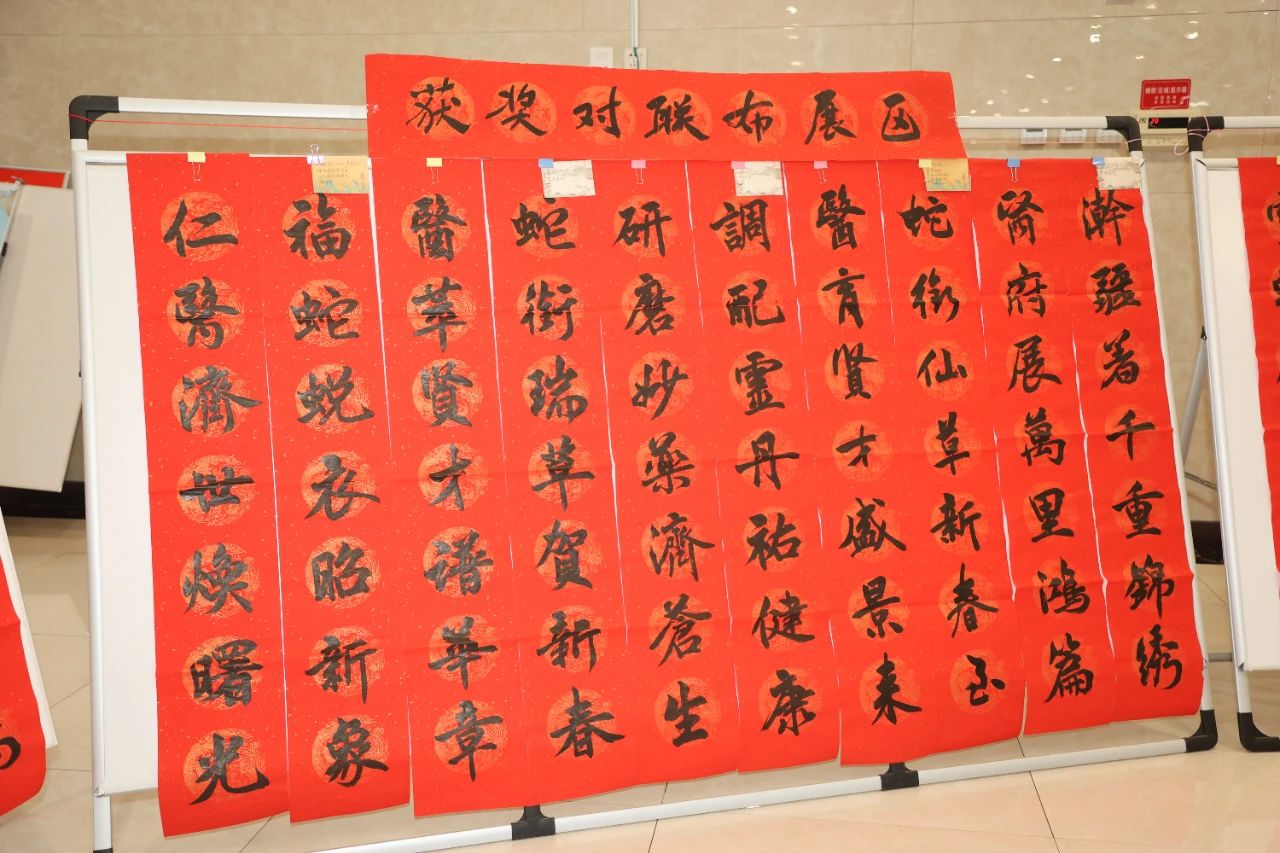 获奖对联布展区
瀚疆著千重錦绣
醫府展萬里鴻篇
蛇銜仙草新春至
醫育賢才盛景来
調配靈丹祐健康
研磨妙藥濟蒼生
蛇銜瑞草賀新春
醫萃賢才谱華章
福蛇蜕衣昭新象
仁醫濟世煥曙光